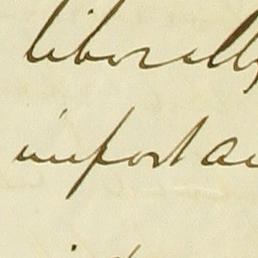 liberally
importan